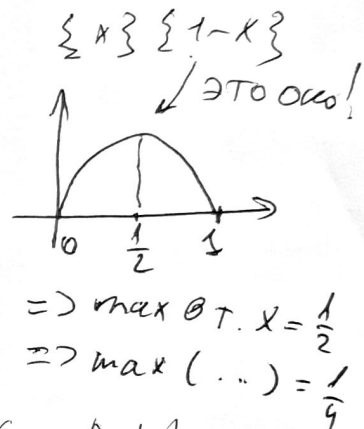 {x} {1-x}
ЭТО ОНО!
0 1/2 1
=> max в т. x = 1/2
=> max (...) = 1/4